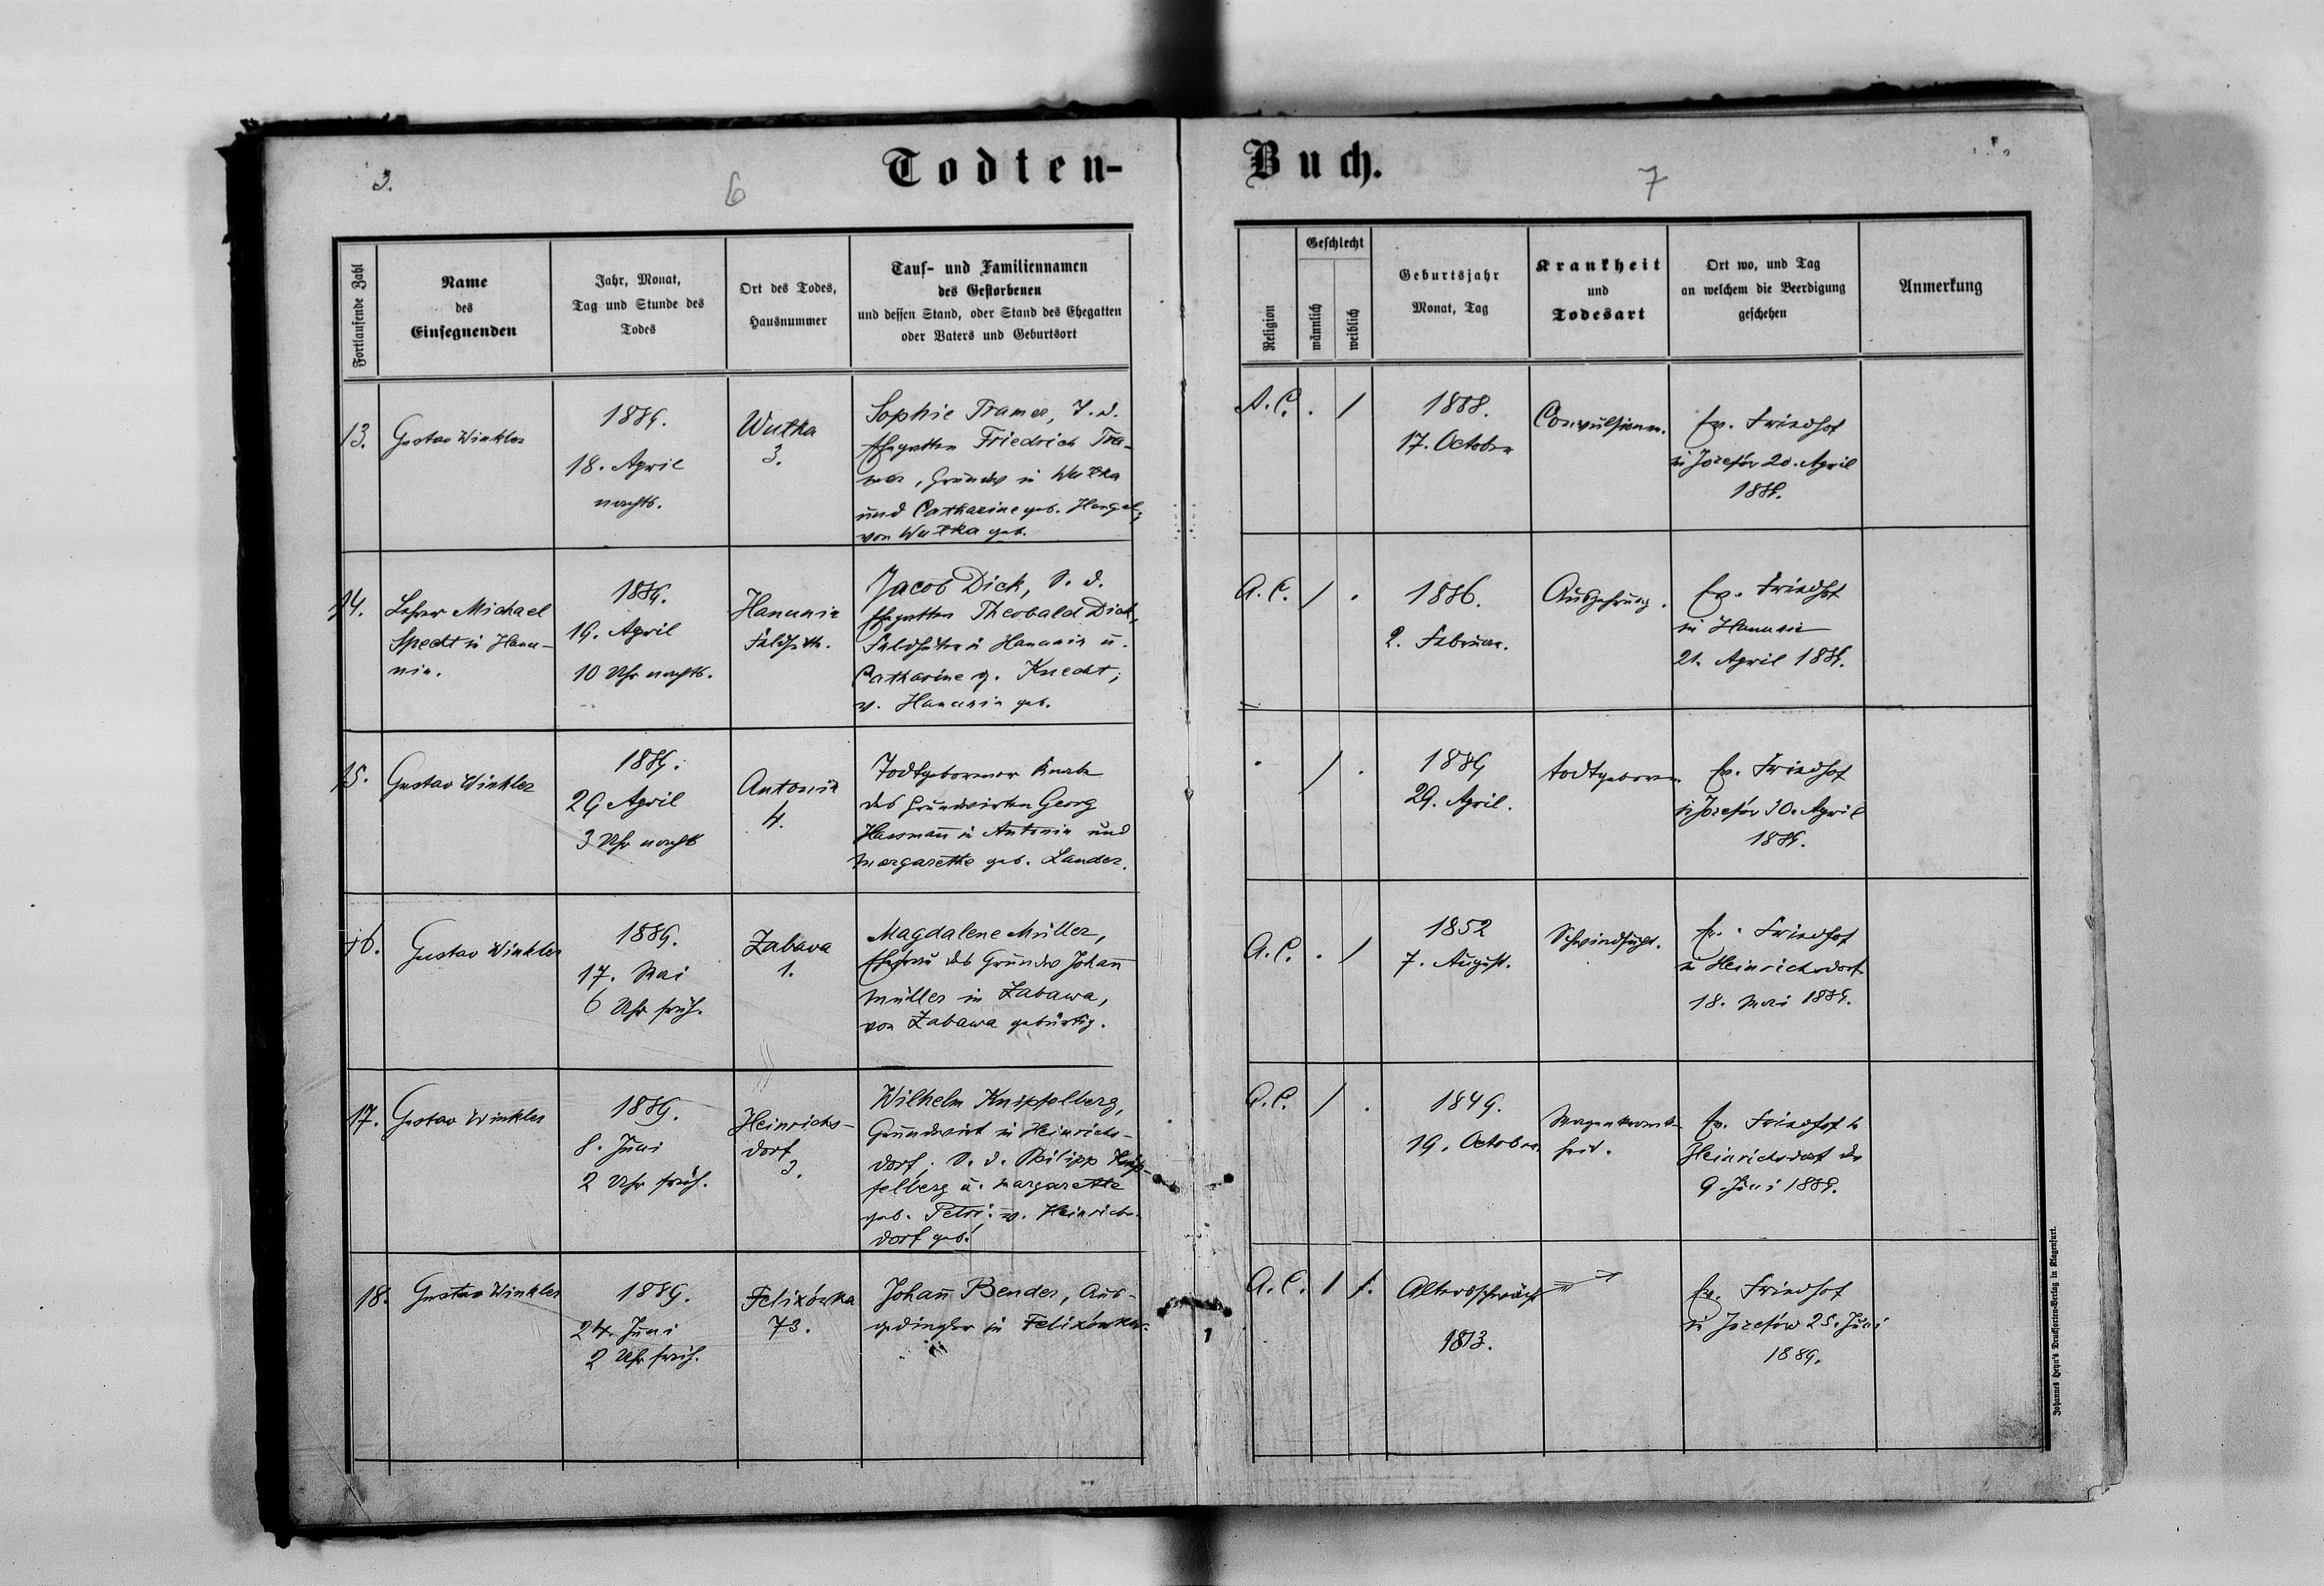 3.
6
Todten-
Buch.
7
Fortlaufende Zahl
Name
des
Einsegnenden
Jahr, Monat,
Tag und Stunde des
Todes
Ort des Todes,
Hausnummer
Tauf- und Familiennamen
des Gestorbenen
und dessen Stand, oder Stand des Ehegatten
oder Vaters und Geburtsort
Religion
Geschlecht
männlich
weiblich
Geburtsjahr
Monat, Tag
Krankheit
und
Todesart
Ort wo, und Tag
an welchem die Beerdigung
geschehen
Anmerkung
13.
Gustav Winkler
1889.
18. April
nachts.
Wutka
3.
Sophie Tramer, T. d.
Ehegatten Friedrich Tra-
mer, Grundw in Wutka
und Catharine geb. Hengel;
von Wutka geb.
A. C. . /
1888.
17. October
Convulsionen.
Ev. Friedhof
in Josefów 20. April
1889.
14.
Lehrer Michael
Specht in Hanu-
nin.
1889.
19. April
10 Uhr nachts.
Hanunin
Feldhütte.
Jacob Dick, S. d.
Ehegatten Theobald Dick,
Feldhüter in Hanunin u.
Catharine g. Knecht;
v. Hanunin geb.
A. C. / .
1886.
2. Februar.
Auszehrung.
Ev. Friedhof
in Hanunin
21. April 1889.
15.
Gustav Winkler
1889.
29 April
3 Uhr nachts
Antonin
4.
Todtgeborener Knabe
des Grundwirten Georg
Hassmañ in Antonin und
Margarethe geb. Lander.
. / .
1889
29. April.
todtgeboren.
Ev. Friedhof
in Josefów 30. April
1889.
16.
Gustav Winkler
1889.
17. Mai
6 Uhr früh.
Zabawa
1.
Magdalene Müller,
Ehefrau des Grundw Johañ
Müller in Zabawa,
von Zabawa gebürtig.
A. C. . /
1852
7. August.
Schwindsucht.
Ev. Friedhof
in Heinrichsdorf
18. Mai 1889.
17.
Gustav Winkler
1889.
8. Juni
2 Uhr früh.
Heinrichs-
dorf
3.
Wilhelm Knipfelberg,
Grundwirt in Heinrichs-
dorf, S. d. Philipp Knip-
felberg u. Margarethe
geb. Petri: v. Heinrichs-
dorf geb.
A. C. / .
1849.
19. October.
Magenkrank-
heit.
Ev. Friedhof in
Heinrichsdorf
9. Juni 1889.
18.
Gustav Winkler
1889.
24. Juni
2 Uhr früh.
Felixówka
73.
Johañ Bender, Aus-
gedingler in Felixówka.
A. C. 1 .
Altersschwäche
1813.
Ev. Friedhof
in Josefów 25. Juni
1889.
Johannes Heyn's Drucksorten-Verlag in Klagenfurt.